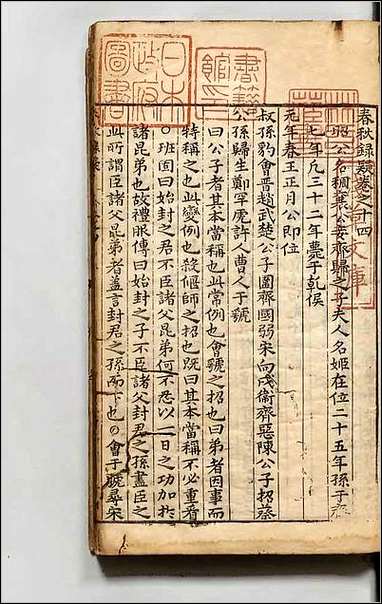 春秋錄疑卷之十四
昭公名稠襄公妾齊歸之子夫人名姬在位二十五年孫于齊
七年凡三十二年薨于乾侯
元年春王正月公即位
叔孫豹會晉趙武楚公子圍齊國弱宋向戌衞齊惡陳公子招蔡
公孫歸生鄭罕虎許人曹人于虢
曰公子者其本當稱也此常例也會虢之招也曰弟者因事而
特稱之也此變例也殺偃師之招也既曰其本當稱不必重看
○班固曰始封之君不臣諸父昆弟何不忍以一日之功加於
諸昆弟也故禮服傳曰始封之子不臣諸父封君之孫盡臣之
此所謂臣諸父昆弟者盖言封君之孫而下也○會于虢尋宋
日本政府圖書
書籍館印
文庫